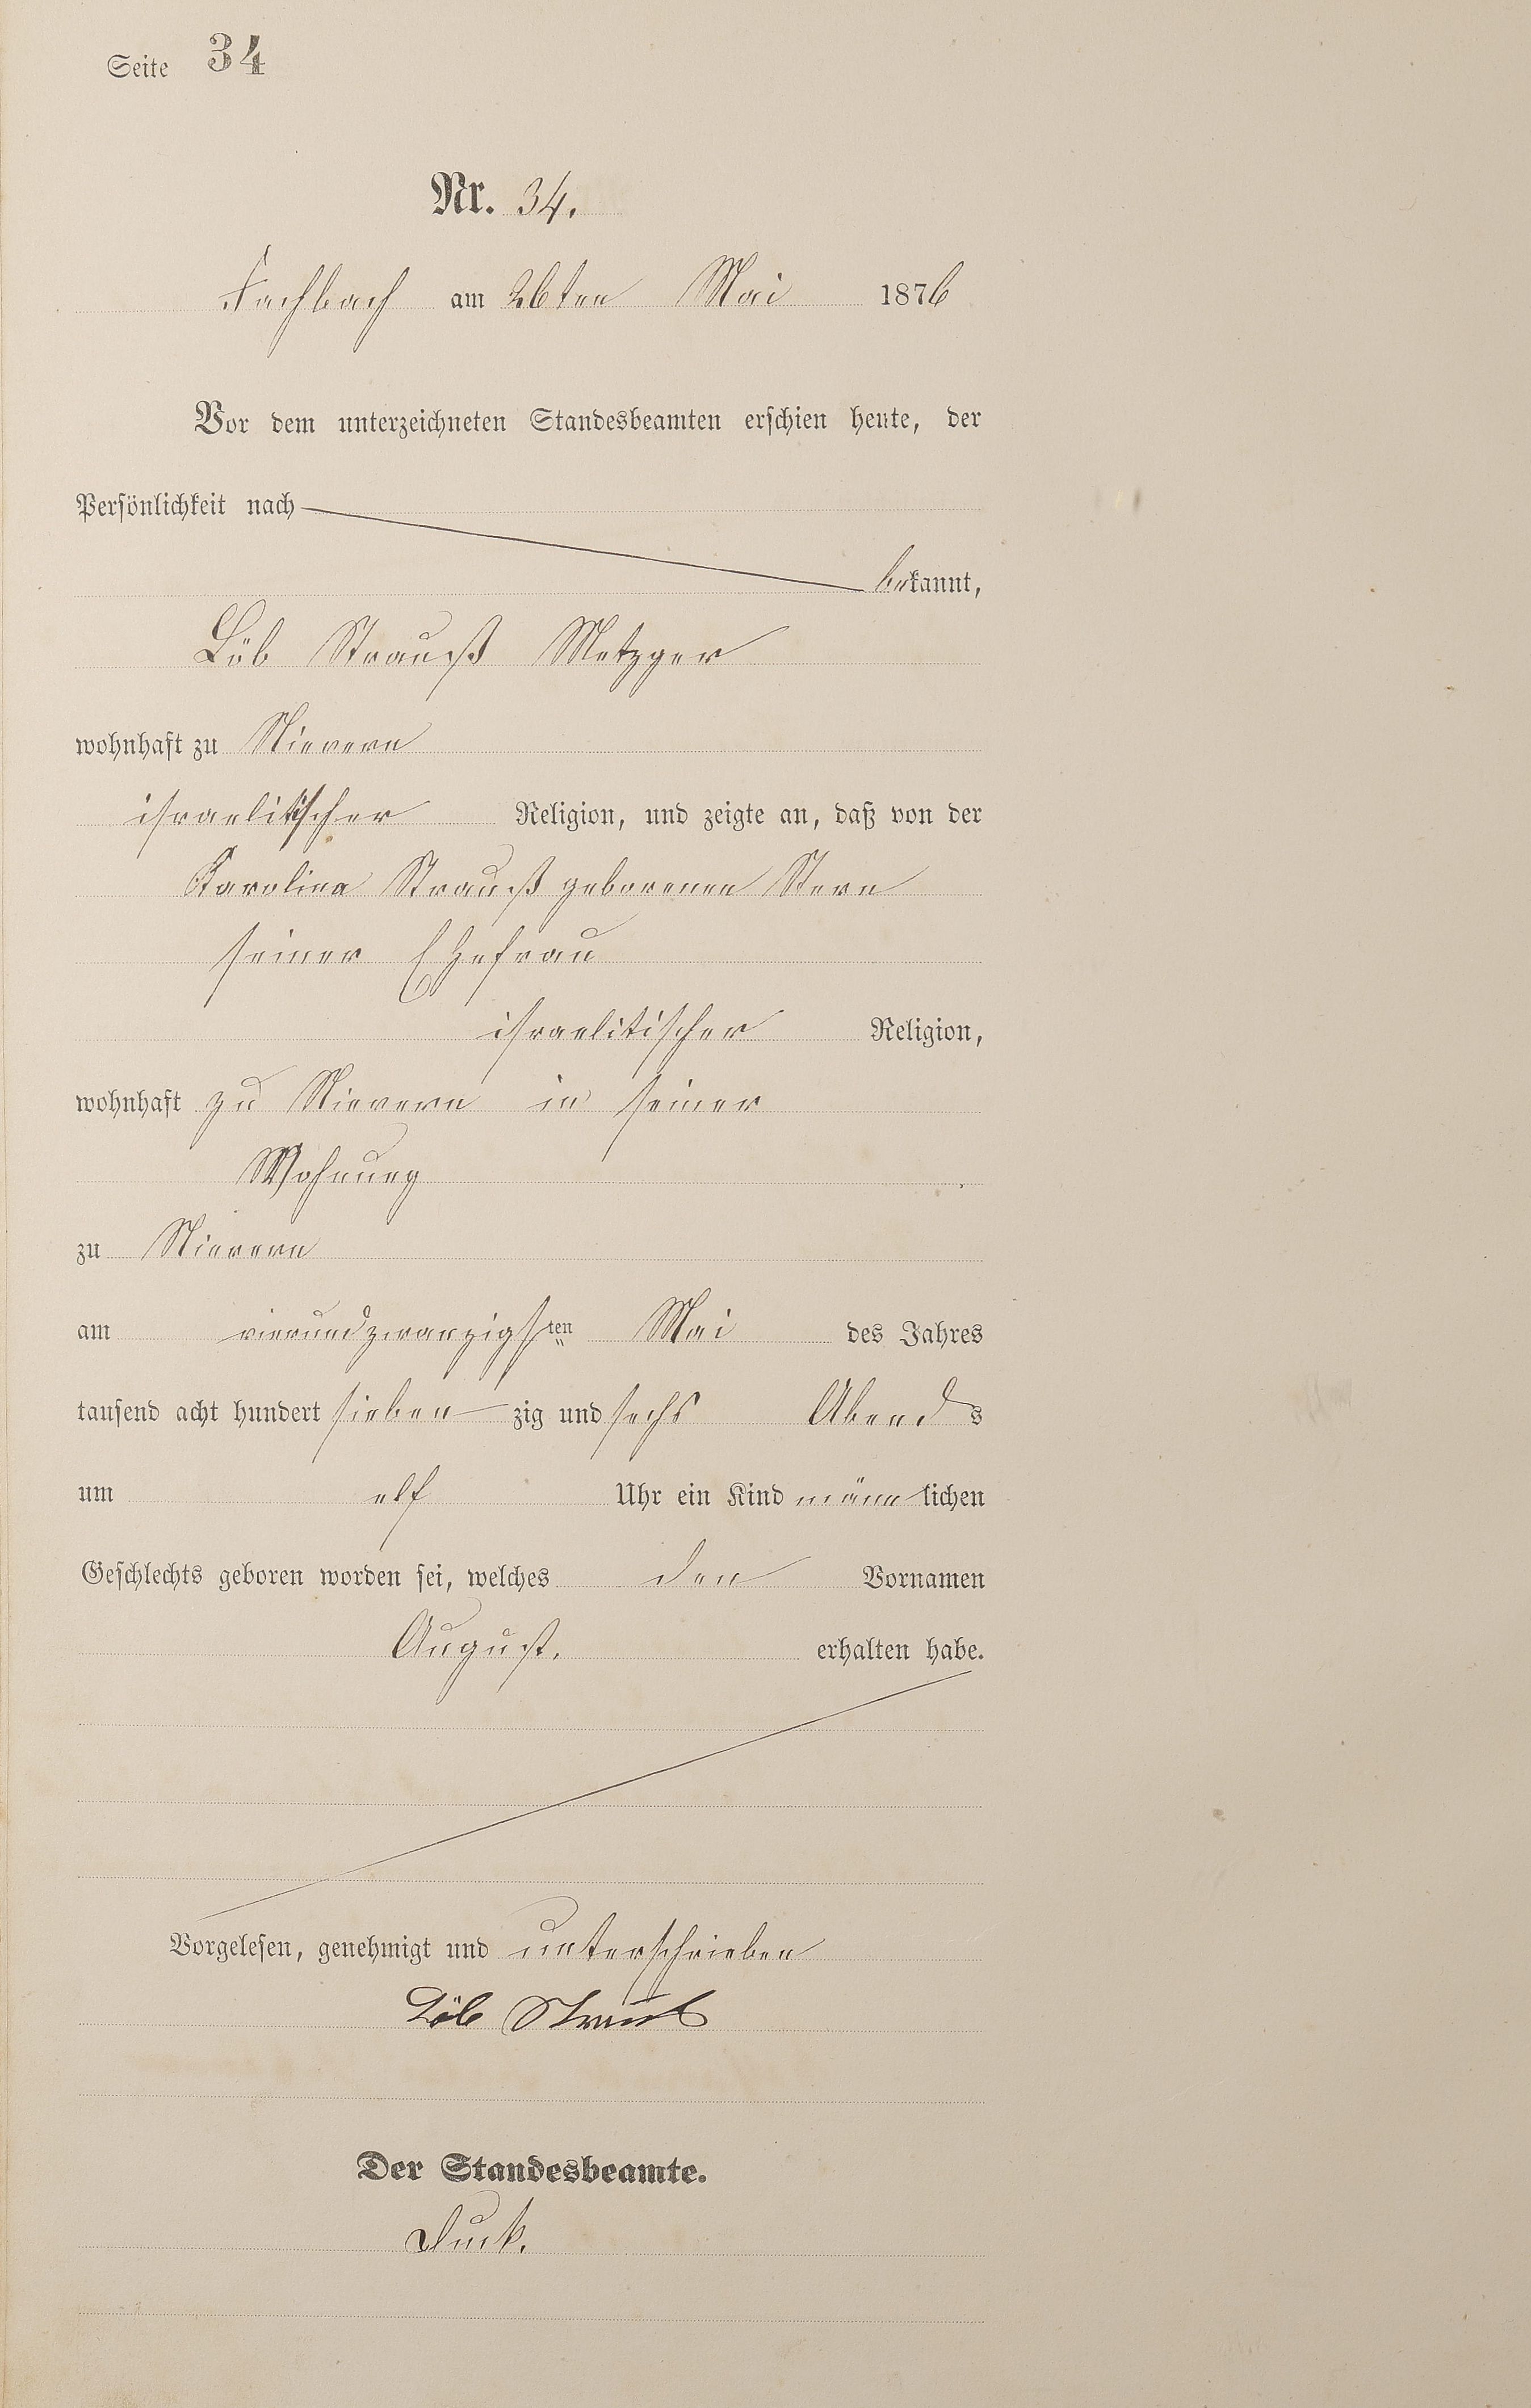 Seite 34
Nr. 34.
Fachbach am 26ten Mai 1876
Vor dem unterzeichneten Standesbeamten erschien heute, der
Persönlichkeit nach
bekannt,
Löb Strauß Metzger
wohnhaft zu Nievern
israelitischer Religion, und zeigte an, daß von der
Karolina Strauß geborenen Stern
seiner Ehefrau
israelitischer Religion,
wohnhaft zu Nievern in seiner
Wohnung
zu Nievern
am vierundzwanzigsten Mai des Jahres
tausend acht hundert siebenzig und sechs Abends
um elf Uhr ein Kind männlichen
Geschlechts geboren worden sei, welches den Vornamen
August. erhalten habe.
Vorgelesen, genehmigt und unterschrieben
Löb Strauß
Der Standesbeamte.